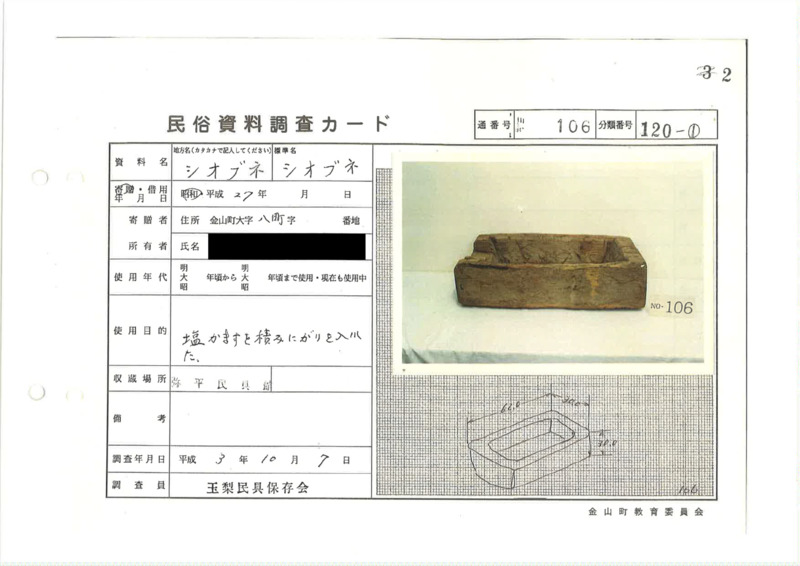 32
民俗資料調査カード
通番号 106 分類番号 120-①
資料名 地方名(カタカナで記入してください) シオブネ 標準名 シオブネ
寄贈・借用年月日 昭和・平成 27年 月 日
寄贈者 住所 金山町大字 八町 字 番地
所有者 氏名
使用年代 明大昭 年頃から 明大昭 年頃まで使用・現在も使用中
使用目的 塩かますを積みにがりを入れ
た。
収蔵場所 弥平民具館
備考
調査年月日 平成 3年 10月 7日
調査員 玉梨民具保存会
NO-106
106
金山町教育委員会